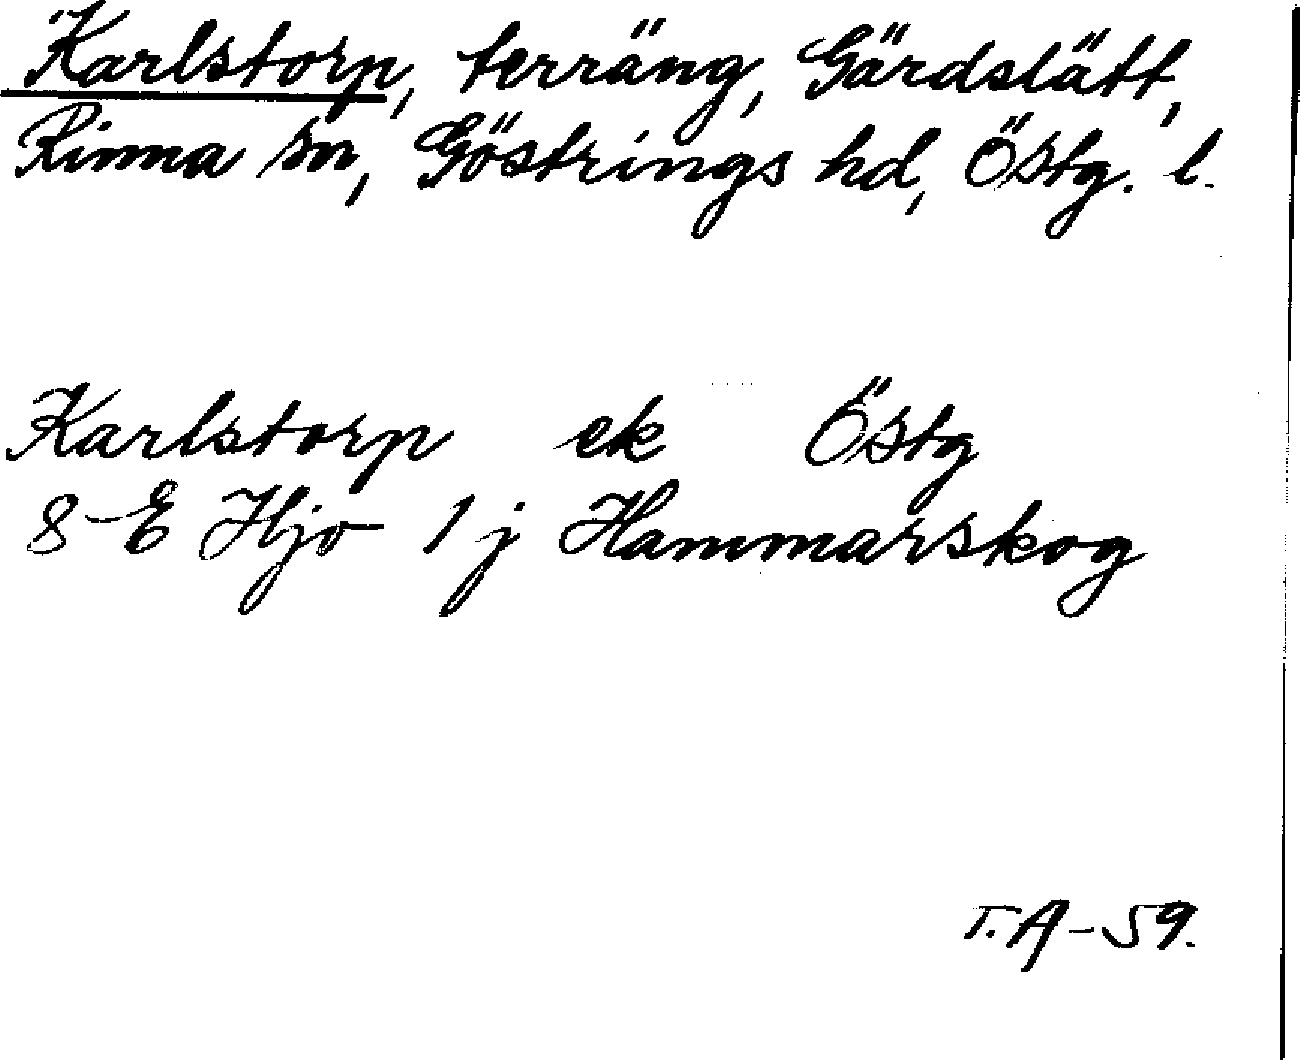 Karlstorp, terräng, Gärdslätt,
Rinna sn, Göstrings hd, Östg. l.
Karlstorp ek Östg
8 E Hjo 1 j Hammarskog
T.A-59.